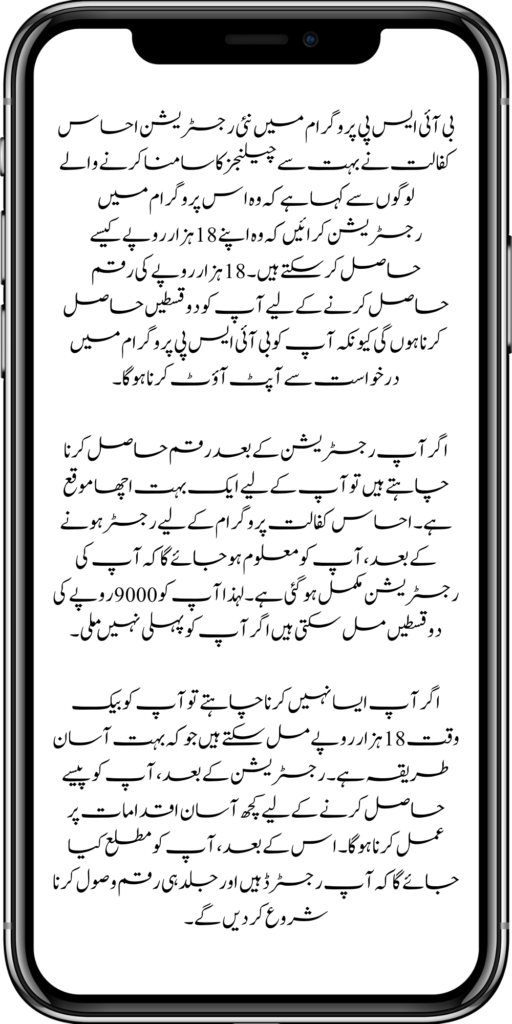 بی آئی ایس پی پروگرام میں نئی رجسٹریشن احساس
کفالت نے بہت سے چیلنجز کا سامنا کرنے والے
لوگوں سے کہا ہے کہ وہ اس پروگرام میں
رجسٹریشن کرائیں کہ وہ اپنے 18 ہزار روپے کیسے
حاصل کر سکتے ہیں۔ 18 ہزار روپے کی رقم
حاصل کرنے کے لیے آپ کو دو قسطیں حاصل
کرنا ہوں گی کیونکہ آپ کو بی آئی ایس پی پروگرام میں
درخواست سے آپٹ آؤٹ کرنا ہوگا۔
اگر آپ رجسٹریشن کے بعد رقم حاصل کرنا
چاہتے ہیں تو آپ کے لیے ایک بہت اچھا موقع
ہے۔ احساس کفالت پروگرام کے لیے رجسٹر ہونے
کے بعد، آپ کو معلوم ہو جائے گا کہ آپ کی
رجسٹریشن مکمل ہو گئی ہے۔ لہذا آپ کو 9000 روپے کی
دو قسطیں مل سکتی ہیں اگر آپ کو پہلی نہیں ملی۔
اگر آپ ایسا نہیں کرنا چاہتے تو آپ کو بیک
وقت 18 ہزار روپے مل سکتے ہیں جو کہ بہت آسان
طریقہ ہے۔ رجسٹریشن کے بعد، آپ کو پیسے
حاصل کرنے کے لیے کچھ آسان اقدامات پر
عمل کرنا ہوگا۔ اس کے بعد، آپ کو مطلع کیا
جائے گا کہ آپ رجسٹرڈ ہیں اور جلد ہی رقم وصول کرنا
شروع کر دیں گے۔